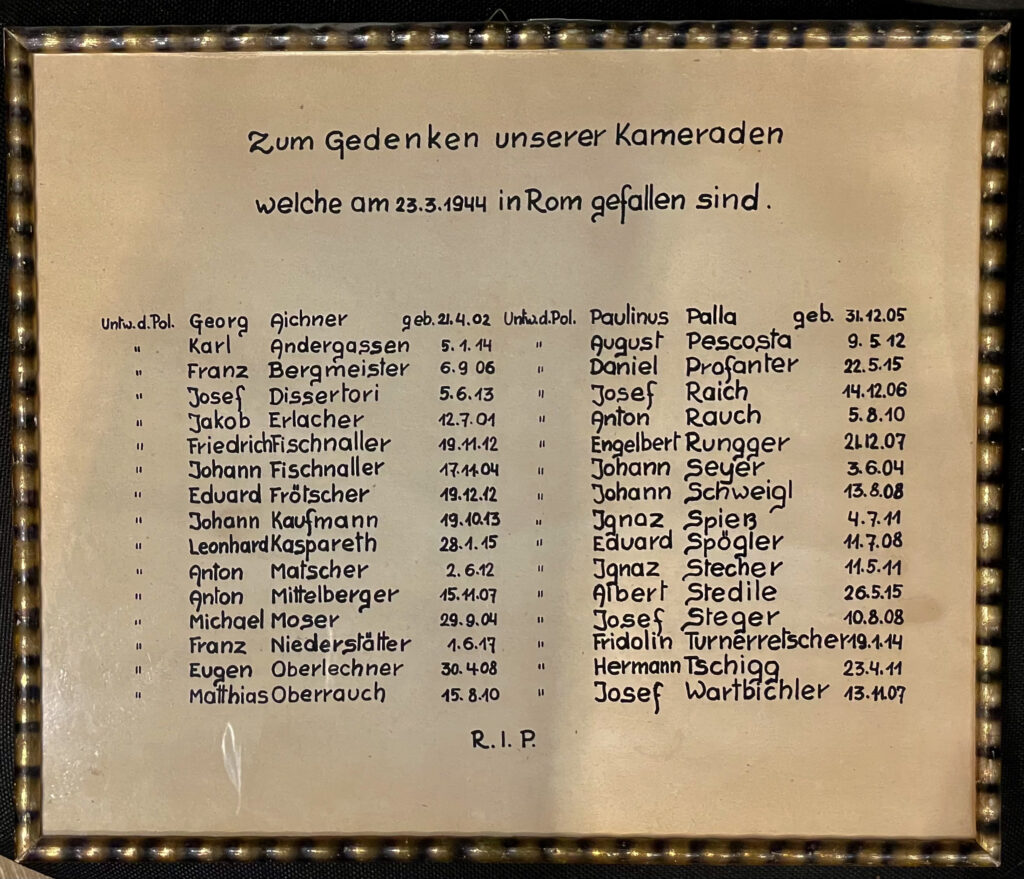 Zum Gedenken unserer Kameraden
welche am 23.3.1944 in Rom gefallen sind.
Untw.d.Pol. Georg Aichner geb. 21.4.02 Untw.d.Pol. Paulinus Palla geb. 31.12.05
" Karl Andergassen 5.1.14 " August Pescosta 9.5.12
" Franz Bergmeister 6.9 06 " Daniel Profanter 22.5.15
" Josef Dissertori 5.6.13 " Josef Raich 14.12.06
" Jakob Erlacher 12.7.01 " Anton Rauch 5.8.10
" Friedrich Fischnaller 19.11.12 " Engelbert Rungger 21.12.07
" Johann Fischnaller 17.11.04 " Johann Seyer 3.6.04
" Eduard Frötscher 19.12.12 " Johann Schweigl 13.8.08
" Johann Kaufmann 19.10.13 " Ignaz Spieß 4.7.11
" Leonhard Kaspareth 28.1.15 " Eduard Spögler 11.7.08
" Anton Matscher 2.6.12 " Ignaz Stecher 11.5.11
" Anton Mittelberger 15.11.07 " Albert Stedile 26.5.15
" Michael Moser 29.9.04 " Josef Steger 10.8.08
" Franz Niederstätter 1.6.17 " Fridolin Turnerretscher 19.1.14
" Eugen Oberlechner 30.4.08 " Hermann Tschigg 23.4.11
" Matthias Oberrauch 15.8.10 " Josef Wartbichler 13.11.07
R.I.P.